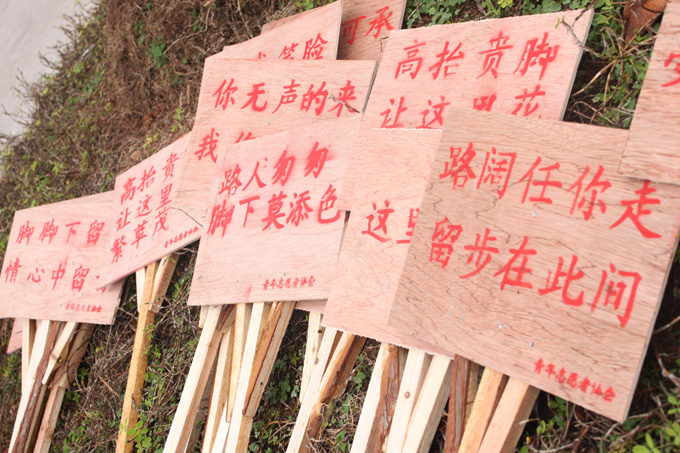 可承
笑脸
高抬贵脚
让这里花
你无声的来
我
高抬贵
让这里
繁草茂
路人匆匆
脚下莫添色
青年志愿者协会
脚脚下留
情心中留
青年志愿者协会
这里
路阔任你走
留步在此间
青年志愿者协会